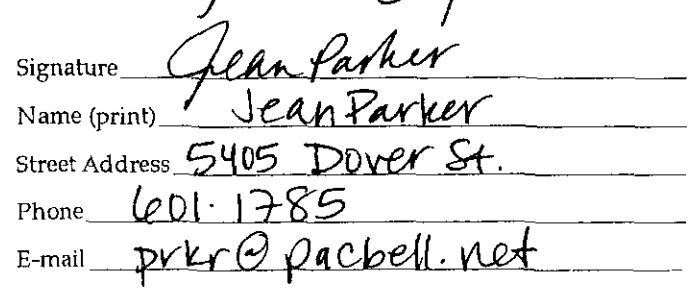 Signature Jean Parker
Name (print) Jean Parker
Street Address 5405 Dover St.
Phone 601.1785
E-mail prkr@pacbell.net